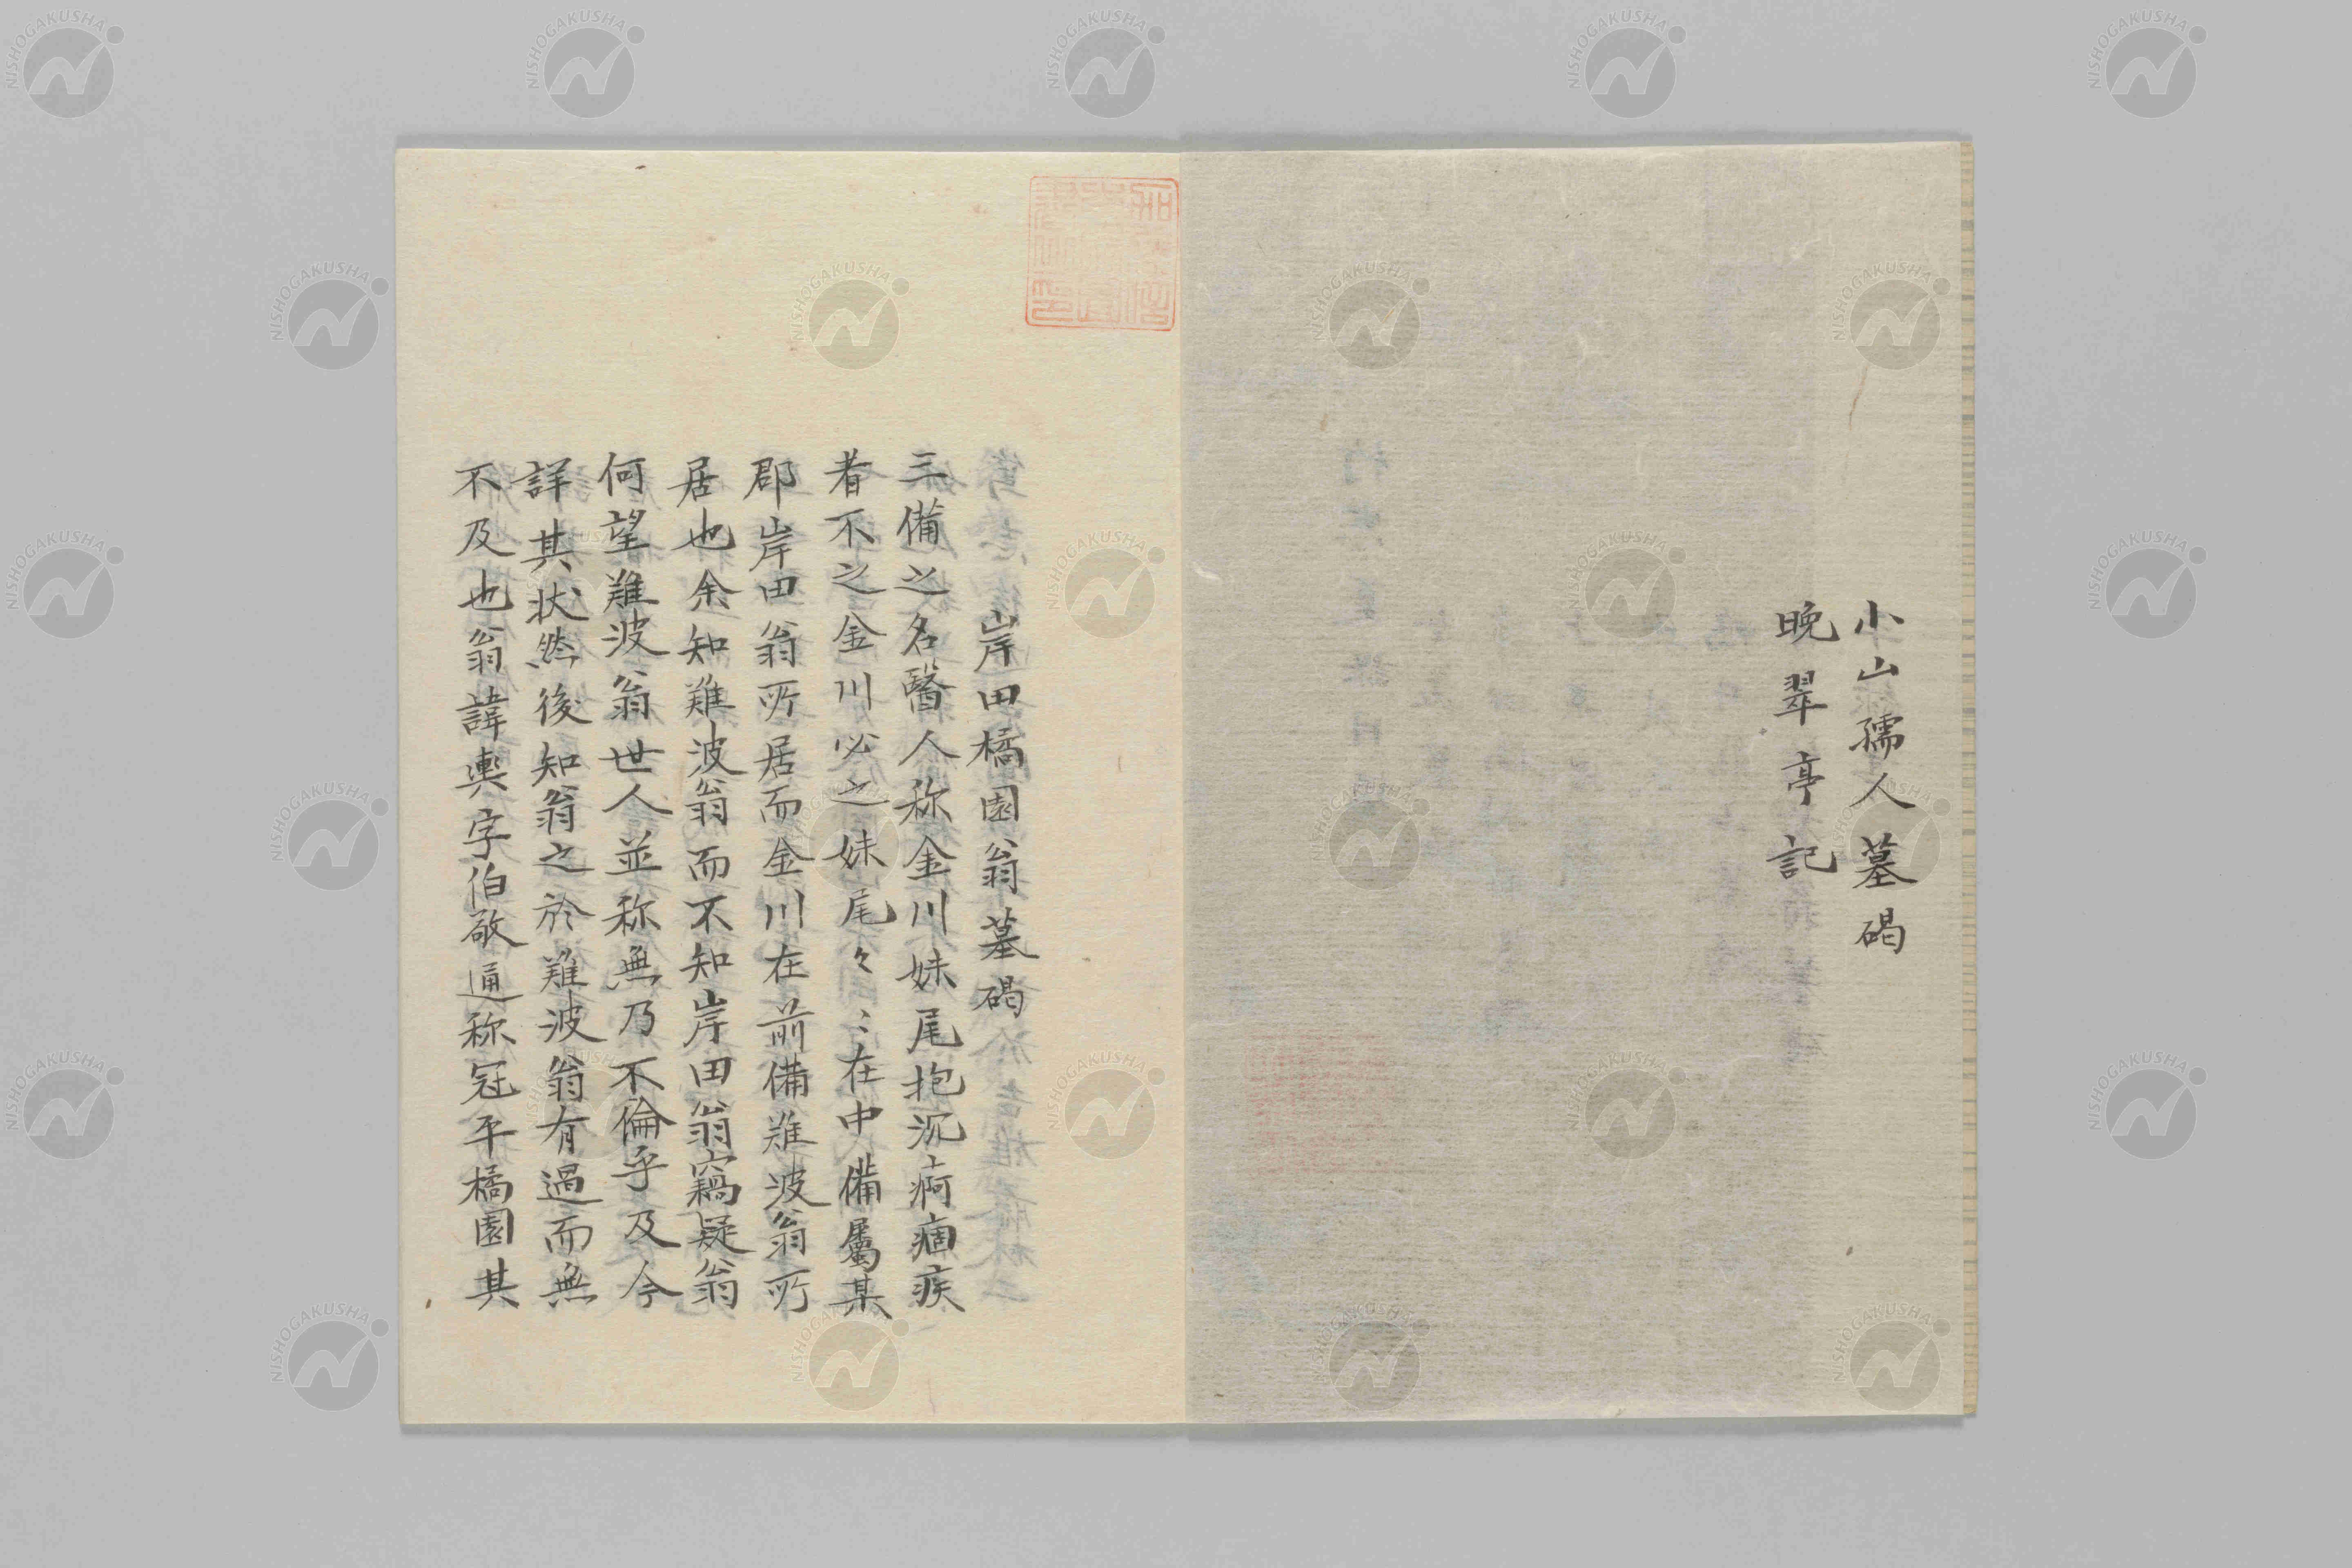 小山孺人墓碣
晩翠亭記
岸田橘園翁墓碣
三備之名醫人称金川妹尾抱沉痾痼疾
者不之金川必之妹尾々〻在中備屬某
郡岸田翁所居而金川在前備難波翁所
居也余知難波翁而不知岸田翁竊疑翁
何望難波翁世人並称無乃不倫乎及今
詳其状然後知翁之於難波翁有過而無
不及也翁諱輿字伯敬通称冠平橘園其
NISHOGAKUSHA